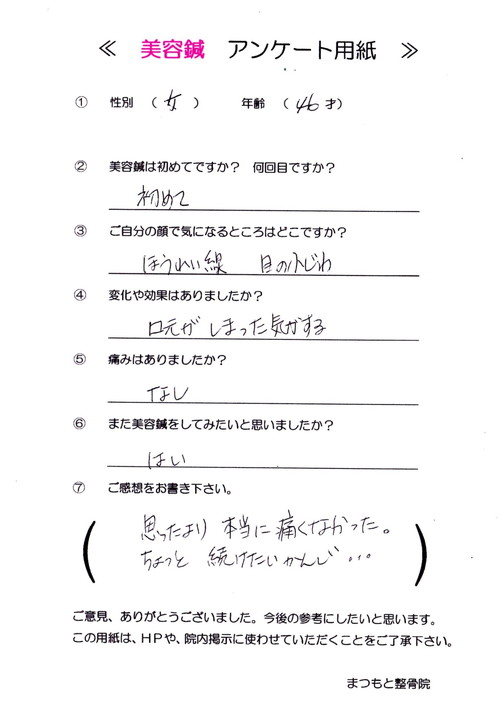 ≪ 美容鍼 アンケート用紙 ≫
① 性別 （ 女 ） 年齢 （ 46 才）
② 美容鍼は初めてですか？ 何回目ですか？
初めて
③ ご自分の顔で気になるところはどこですか？
ほうれい線 目の小じわ
④ 変化や効果はありましたか？
口元が しまった気がする
⑤ 痛みはありましたか？
なし
⑥ また美容鍼をしてみたいと思いましたか？
はい
⑦ ご感想をお書き下さい。
思ったより 本当に 痛くなかった。
ちょっと 続けたいかんじ ...
ご意見、ありがとうございました。今後の参考にしたいと思います。
この用紙は、ＨＰや、院内掲示に使わせていただくことをご了承下さい。
まつもと整骨院